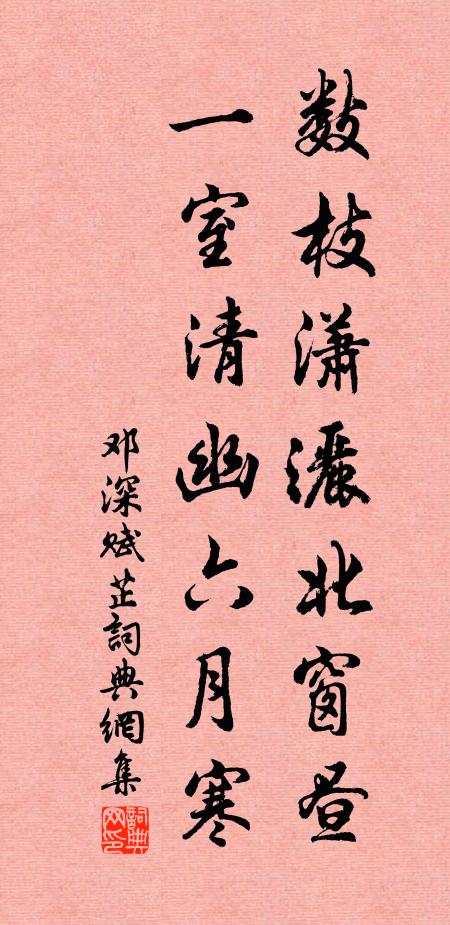 数枝潇灑北窗昼
一室清幽六月寒
邓深赋芷詞典網集
詞典网印